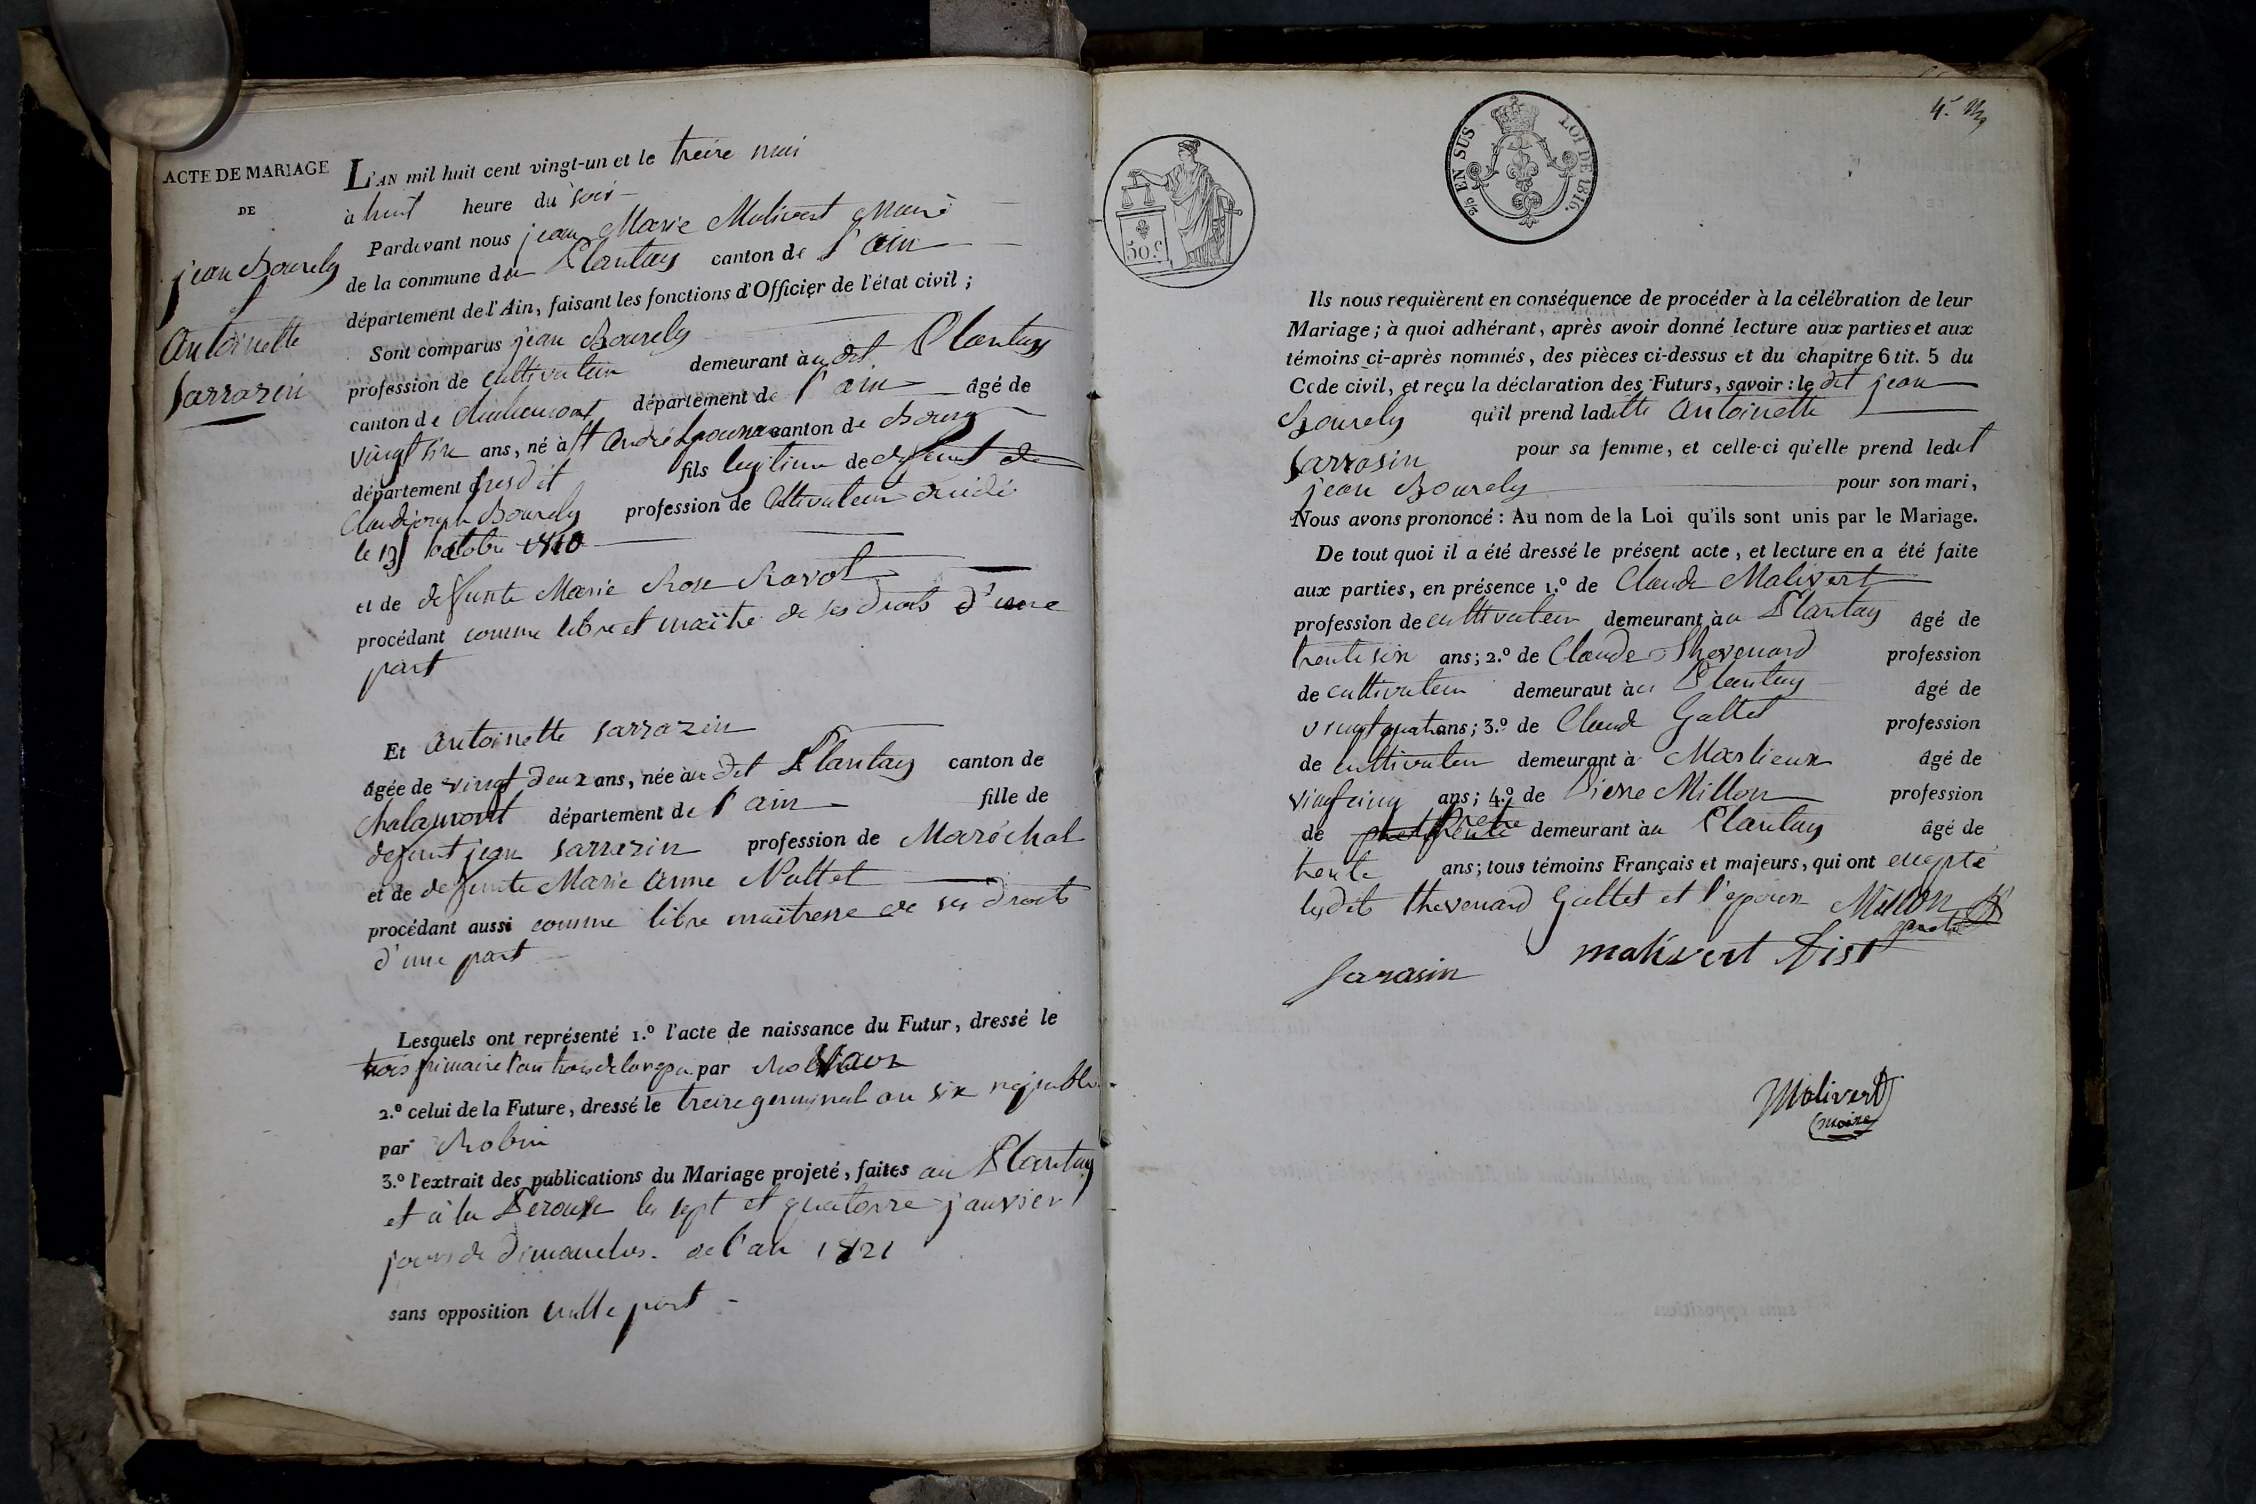 ACTE DE MARIAGE
DE
jean Bourely
et
Antoinette
Sarrazin
L'AN mil huit cent vingt-un et le treize mai
à huit heure du soir
Pardevant nous jean Marie Malivert Maire
de la commune du Plantay canton de l'ain
département de l'Ain, faisant les fonctions d'Officier de l'état civil ;
Sont comparus jean Bourely
profession de cultivateur demeurant à au dit Plantay
canton de département de l'ain âgé de
ans, né à st André canton de Bourg
département susdit fils legitime de defunt de
Bourely profession de Cultivateur décidé
le 19 octobre 1810
et de defunte Marie Rose Ravot
procédant comme libre et maître de ses droits d'une
part
Et Antoinette Sarrazin
âgée de vingt deux ans, née à au dit Plantay canton de
Chalamont département de l'ain fille de
defunt jean Sarrazin profession de Maréchal
et de defunte Marie Anne
procédant aussi comme libre maitresse de ses droits
d'une part
Lesquels ont représenté 1.º l'acte de naissance du Futur, dressé le
trois frimaire l'an trois de la repu par
2.º celui de la Future, dressé le treize germinal an six republi
par Robin
3.º l'extrait des publications du Mariage projeté, faites au Plantay
et à la Perouse les sept et quatorze janvier
jours de dimanches de l'an 1821
sans opposition nulle part
4.
2/0 EN SUS
LOI DE 1816.
50 c
Ils nous requièrent en conséquence de procéder à la célébration de leur
Mariage ; à quoi adhérant, après avoir donné lecture aux parties et aux
témoins ci-après nommés, des pièces ci-dessus et du chapitre 6 tit. 5 du
Code civil, et reçu la déclaration des Futurs, savoir : le dit jean
Bourely qu'il prend ladette Antoinette
Sarrasin pour sa femme, et celle-ci qu'elle prend ledit
jean Bourely pour son mari,
Nous avons prononcé : Au nom de la Loi qu'ils sont unis par le Mariage.
De tout quoi il a été dressé le présent acte, et lecture en a été faite
aux parties, en présence 1.º de Claude Malivert
profession de cultivateur demeurant à au Plantay âgé de
trente six ans ; 2.º de Claude Thevenard profession
de cultivateur demeurant à au Plantay âgé de
vingt quatre ans ; 3.º de Claude Gallet profession
de cultivateur demeurant à Marlieux âgé de
vingt cinq ans ; 4.º de Pierre Millon profession
de Pretre demeurant à au Plantay âgé de
trente ans ; tous témoins Français et majeurs, qui ont excepté
lesdits thevenard Gallet et l'epoux Millon
Sarasin malivert
Malivert
maire